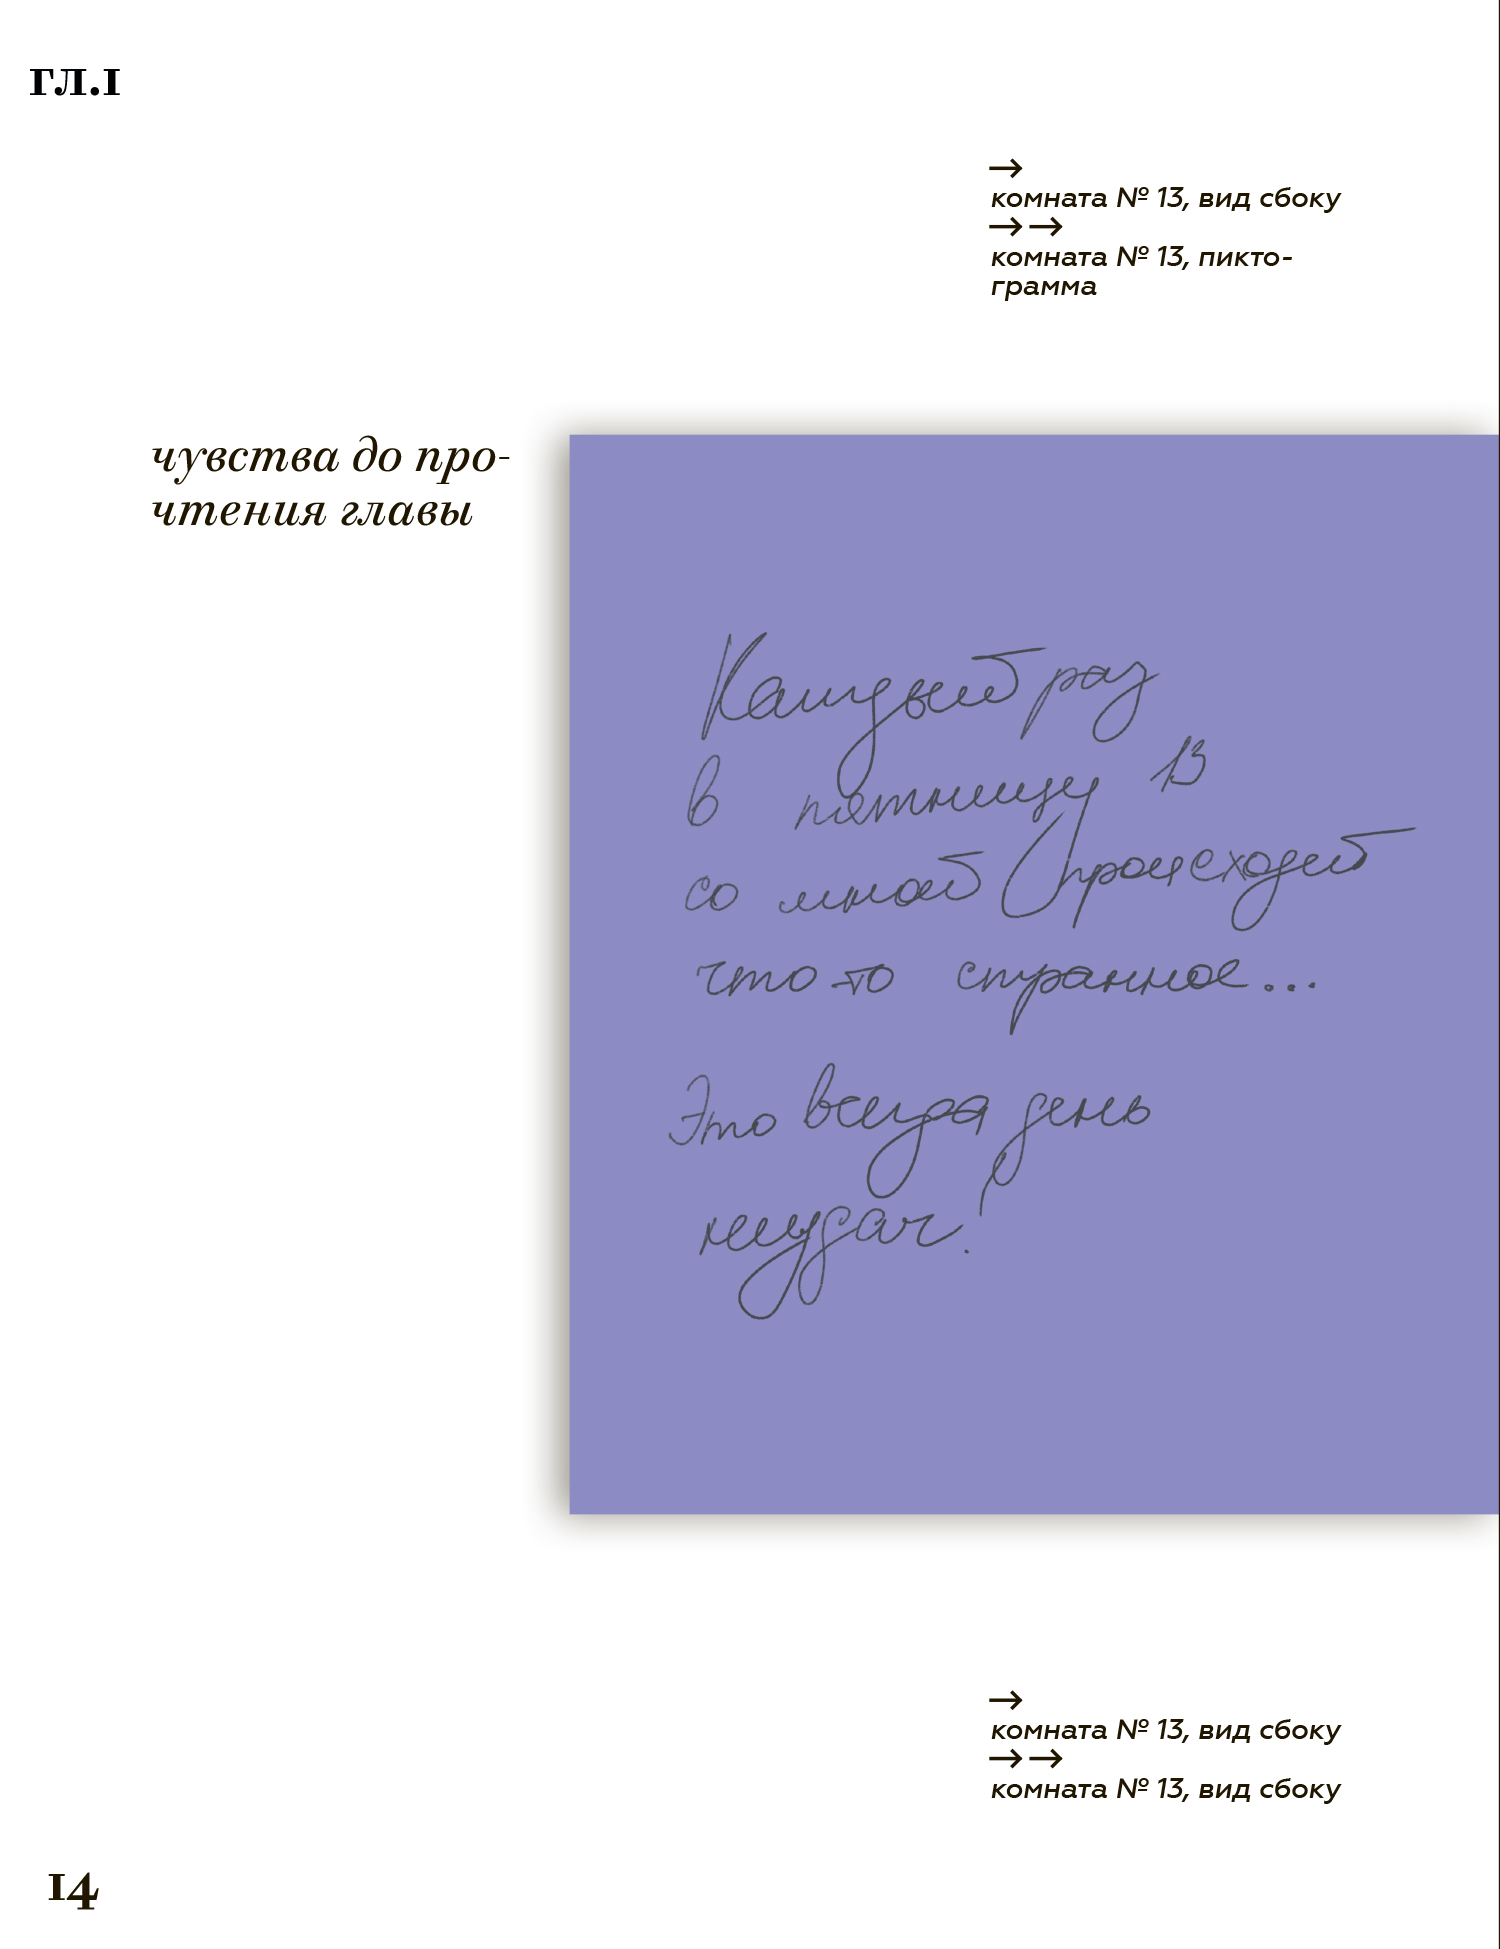 гл.1
→
комната № 13, вид сбоку
→→
комната № 13, пикто-
грамма
чувства до про-
чтения главы
Каждый раз
в пятницу 13
со мной происходит
что-то странное...
Это всегда день
неудач!
→
комната № 13, вид сбоку
→→
комната № 13, вид сбоку
14